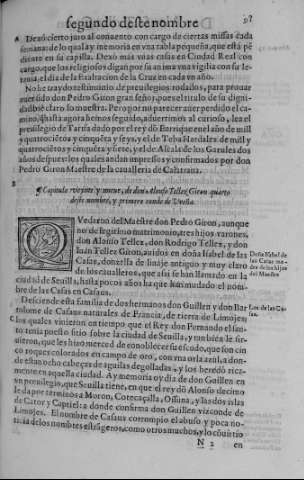 segundo deste nombre 97
A De a cierto juro al conuento con cargo de ciertas missas cada
semana: de lo qual ay memoria en vna tabla pequeña, que está pẽ
diente en su capilla. Dexó mas vnas casas en Ciudad Real con
cargo, que los religiosos digan por su anima vna vigilia con su le-
tania, el dia de la Exaltacion de la Cruz en cada vn año.
No he traydo testimonio de preuilegios rodados, para prouar
auer sido don Pedro Giron gran señor, pues el titulo de su digni-
dad bié claro lo muestra. Pero por no parecer auer perdido el ca-
mino, q̃ hasta agora hemos seguido, aduertimos al curioso, lea el
preuilegio de Tarifa dado por el rey dõ Enrrique en el año de mill
y quatrociẽtos y cinquẽta y seys, y el de Tuba Hardales de mill y
quatrociẽtos y cinquẽta y siete, y el de Alcalá de los Gazules dos
años despues: los quales andan impressos y confirmados por don
Pedro Giron Maestre de la caualleria de Calatraua.
B
¶ Capitulo veynte y nueue, de don Alonso Tellez Giron quarto
deste nombre, y primero conde de Vreña.
QVedaron del Maestre don Pedro Giron, aunque
no de legitimo matrimonio, tres hijos varones,
don Alonso Tellez, don Rodrigo Tellez, y don
Iuan Tellez Giron, auidos en doña Isabel de las
Casas, donzella de linaje antiguo y muy claro
de los caualleros, que assi se han llamado en la
ciudad de Seuilla, hasta pocos años ha que han mudado el nom-
bre de las Casas en Casaus.
Doña Isabel de
las Casas ma-
dre de los hijos
del Maestre
Desciende esta familia de dos hermanos don Guillen y don Bar
tolome de Casaus naturales de Francia, de tierra de Limojes
Los de las Ca-
sas.
C Los quales vinieron en tiempo que el Rey don Fernando el san-
to tenia puesto sitio sobre la ciudad de Seuilla, y tambiẽ le sir-
uieron, que les hizo merced de conocelles su escudo, que son cin
co roques colorados en campo de oro, con vna orla azul, a don-
de estan ocho cabeças de aguilas degolladas, y los heredó rica-
mente en aquella ciudad. Ay memoria oy dia de don Guillen en
vn preuilegio, que Seuilla tiene, en que el rey dõ Alonso decimo
le da por terminos a Moron, Cote, Caçalla, Ossuna, y las dos islas
de Cator y Captiel: a donde confirma don Guillen vizconde de
Limojes. El nombre de Casaus corrompio el abuso y poca no-
N 2 en